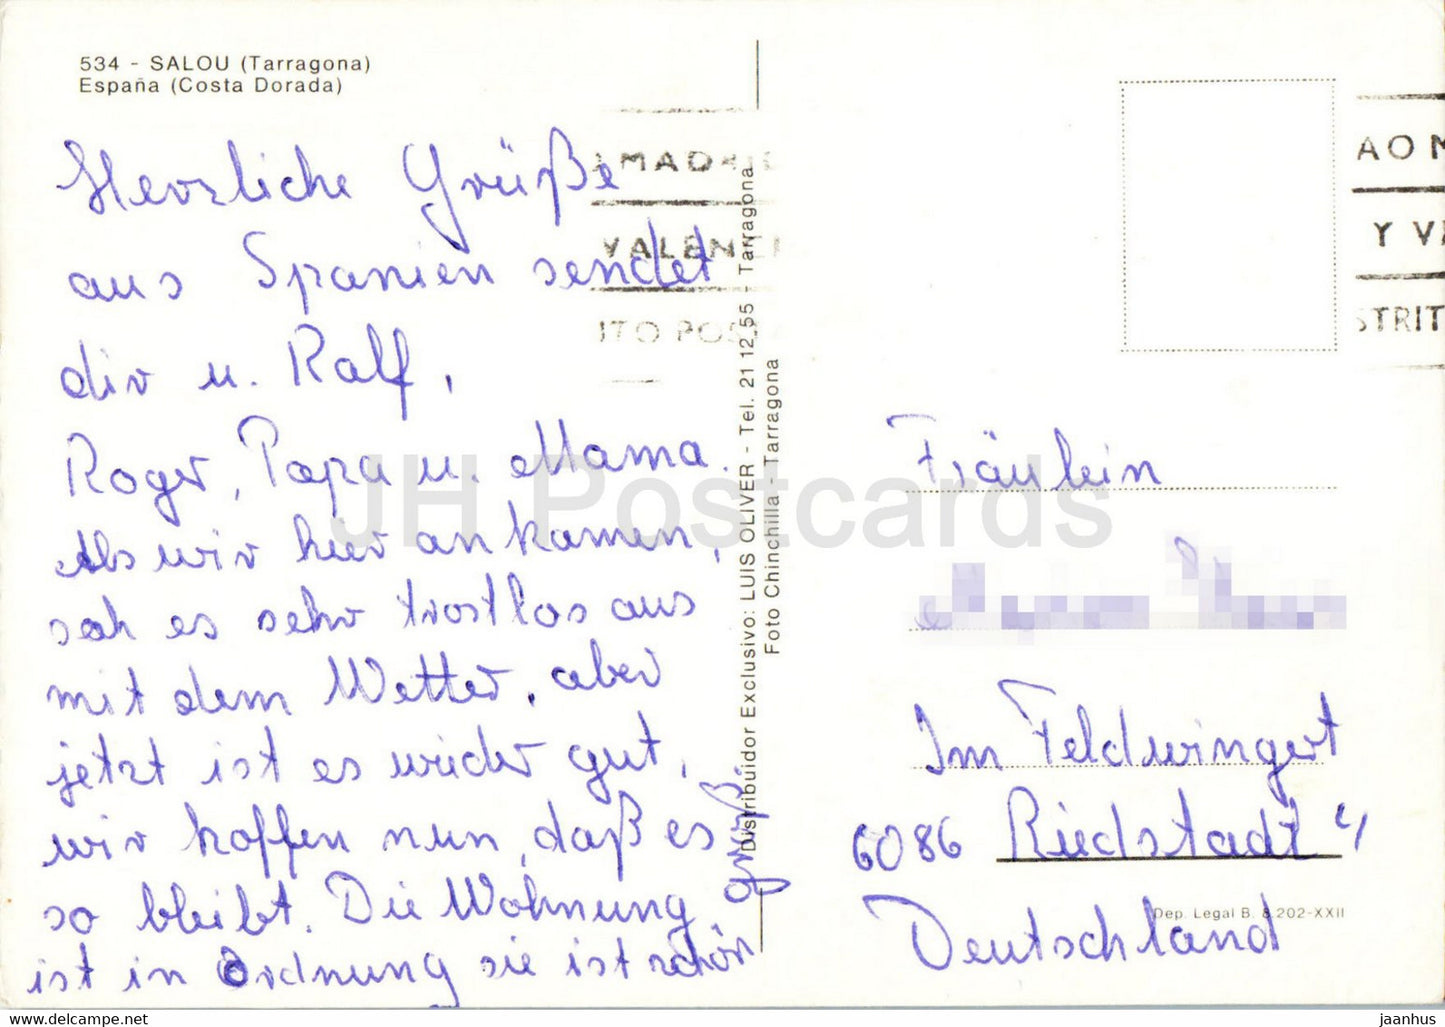 534 - SALOU (Tarragona)
España (Costa Dorada)
Herzliche Grüße
aus Spanien sendet
dir u. Ralf,
Roger, Papa u. Mama.
Als wir hier ankamen,
sah es sehr trostlos aus
mit dem Wetter, aber
jetzt ist es wieder gut,
wir hoffen nun, daß es
so bleibt. Die Wohnung
ist in Ordnung sie ist schön
groß.
MADRI
VALEN
ITO POS
Distribuidor Exclusivo: LUIS OLIVER - Tel. 21 12 55 - Tarragona
Foto Chinchilla - Tarragona
AO M
Y VA
STRIT
Fräulein
Im Feldwingert
6086 Riedstadt 4
Deutschland
Dep. Legal B. 8.202-XXII
JH Postcards
www.delcampe.net
jaanhus